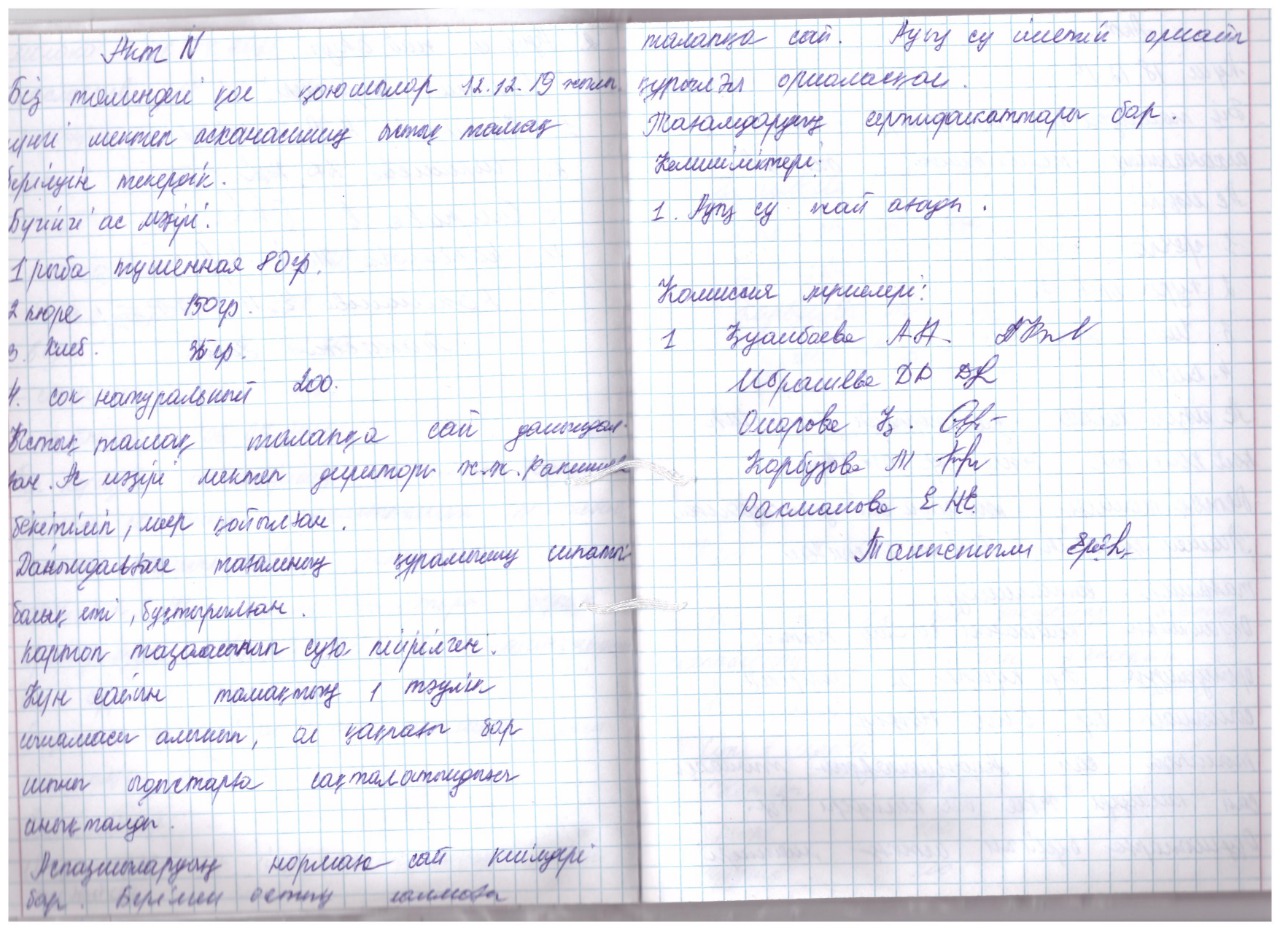 Акт N
Біз төмендегі қол қоюшылар 12.12.19 жылы
күнгі мектеп асханасының ыстық тамақ
берілуін тексердік.
Бүгінгі ас мәзірі.
1 рыба тушенная 80гр.
2 пюре 150гр.
3. Хлеб. гр.
4. сок натуральный 200.
Ыстық тамақ талапқа сай дайындал-
ған. Ас мәзірі мектеп директоры
бекітіліп, мөр қойылған.
Дайындалған тағамның құрамының сипаты
балық еті, бұқтырылған.
Картоп тазаланып сүзіп пісірілген.
Күн сайын тамақтың 1 тәулік
сынамасы алынып, ол қақпағы бар
шыны ыдыстарға сақталатындығы
анықталды.
Аспазшылардың нормаға сай киімдері
бар. Берілген астың салмағы
талапқа сай. Ауыз су ішетін орнат
құрылғы орналасқан.
Тағамдардың сертификаттары бар.
Кемшіліктері:
1. Ауыз су жай ағады.
Комиссия мүшелері:
1 Қуанбаева А.Н.
Ибрашева Д.А
Омарова Қ.
Карбузова М
Рахманова Е
Таныстым